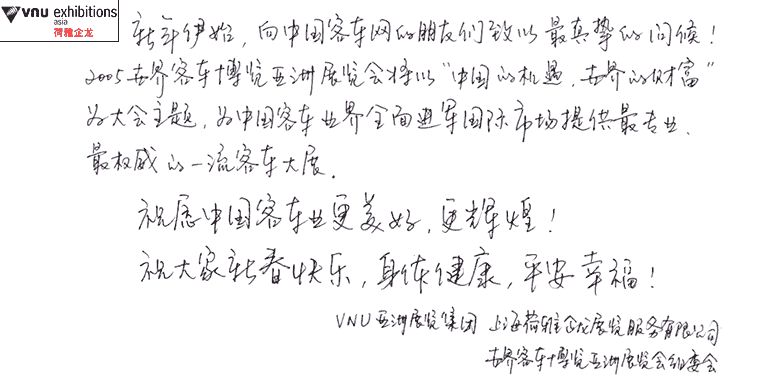 vnu exhibitions
asia
荷雅企龙
新年伊始，向中国客车网的朋友们致以最真挚的问候！
2005世界客车博览亚洲展览会将以“中国的机遇，世界的财富”
为大会主题，为中国客车业界全面进军国际市场提供最专业、
最权威的一流客车大展。
祝愿中国客车业更美好，更辉煌！
祝大家新春快乐，身体健康，平安幸福！
VNU亚洲展览集团 上海荷雅企龙展览服务有限公司
世界客车博览亚洲展览会组委会